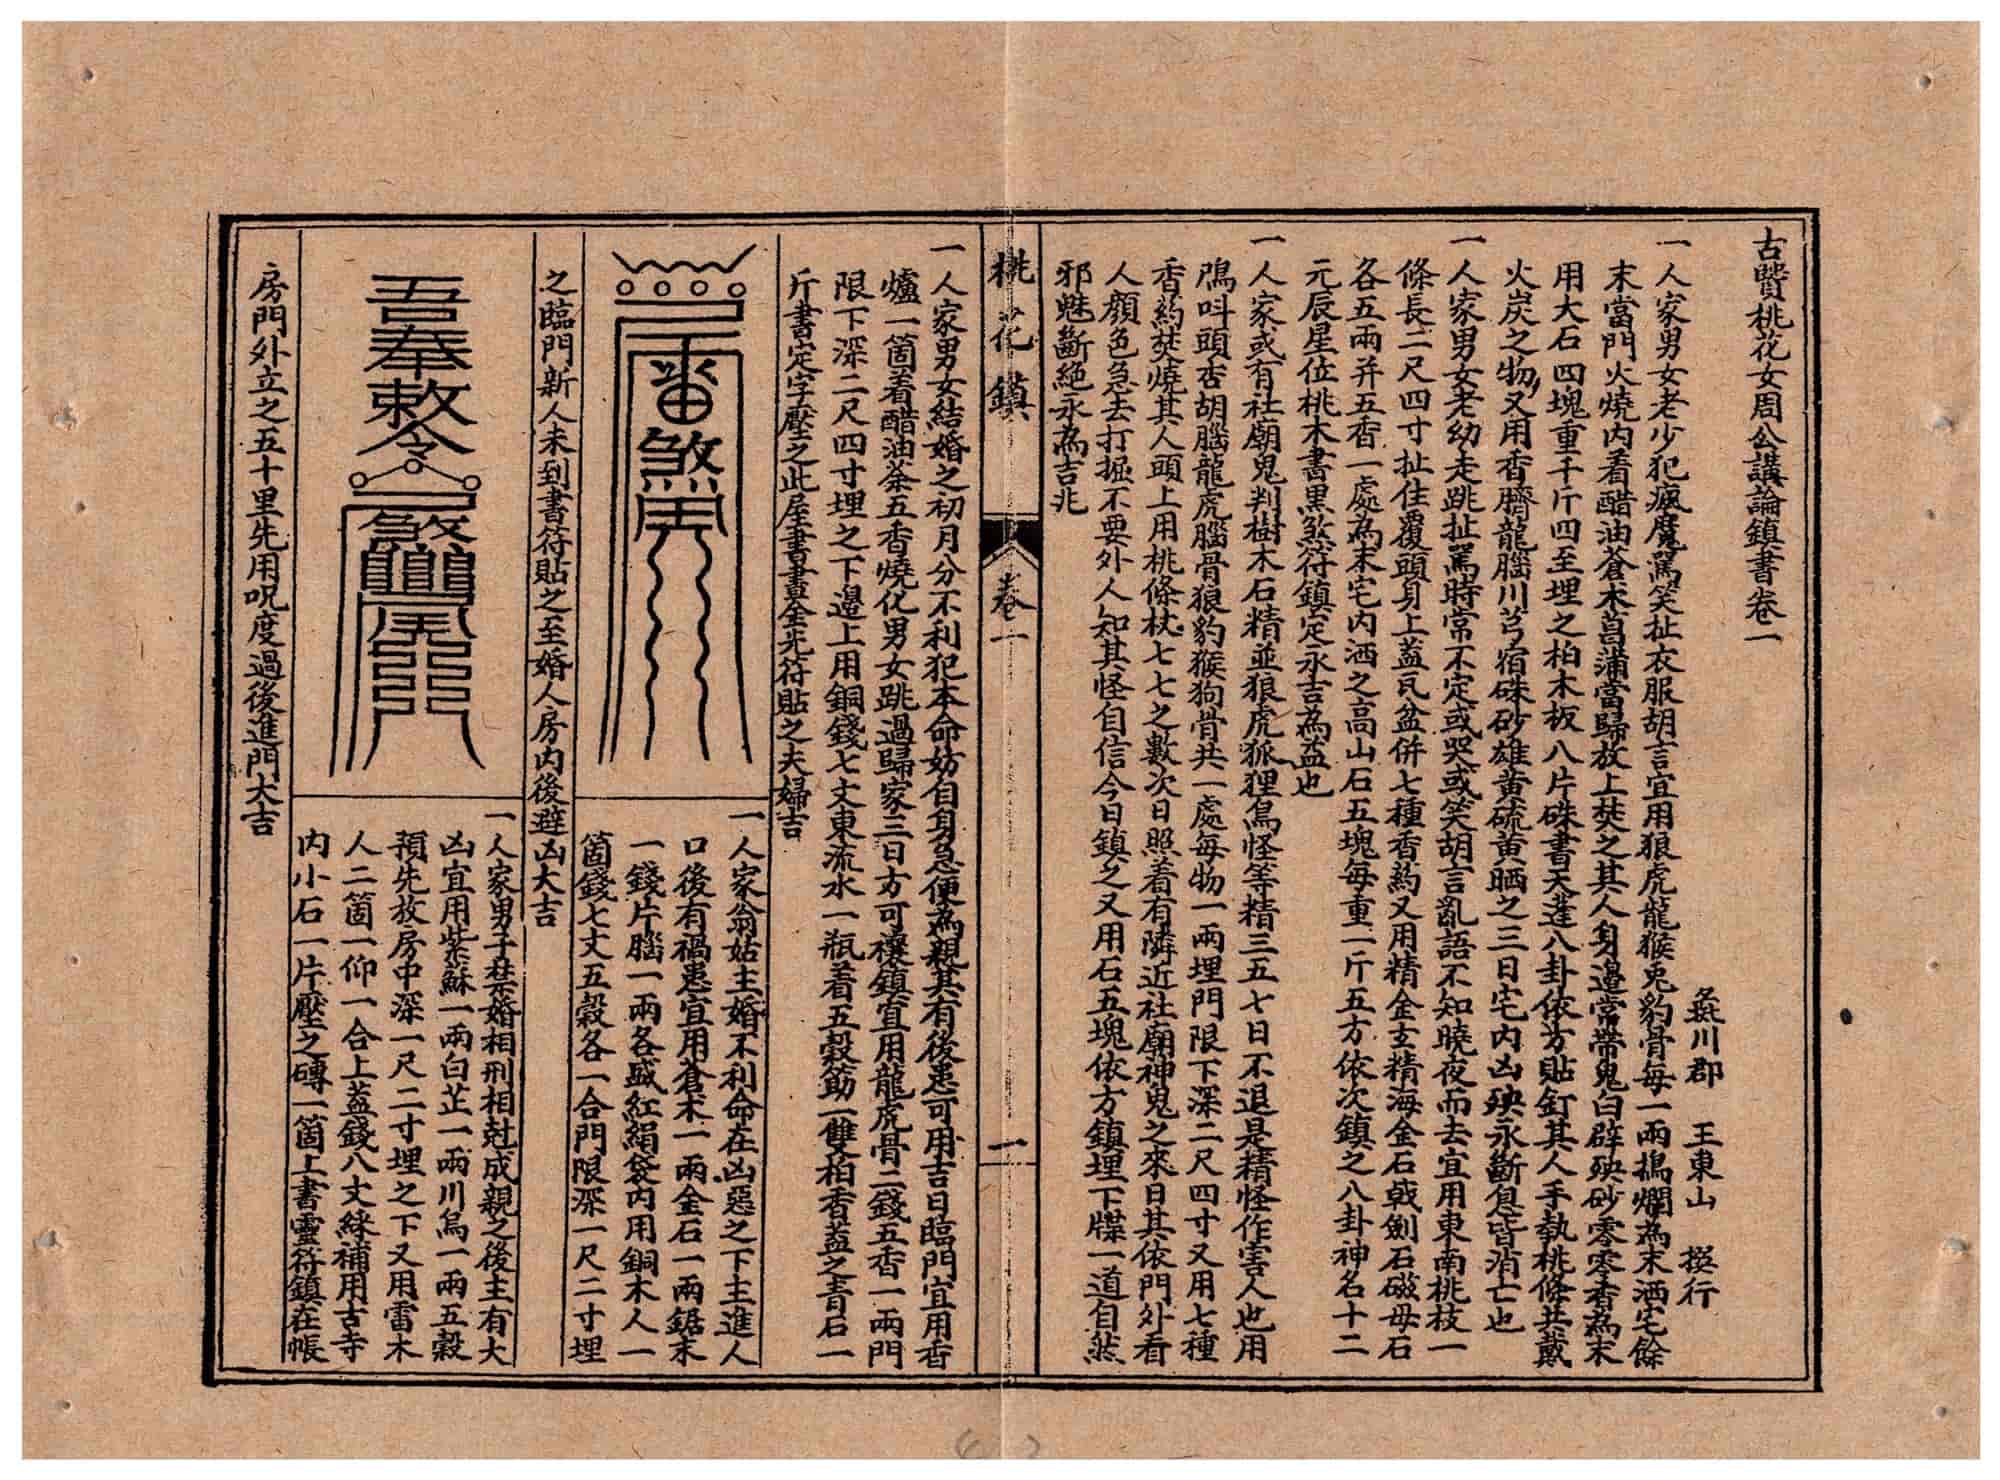 古賢桃花女周公講論鎮書卷一
川郡 王東山 撰行
一人家男女老少犯瘋魔罵笑扯衣服胡言宜用狼虎龍猴兎豹骨每一兩搗爛為末洒宅餘
末當門火燒內着醋油蒼术菖蒲當歸放上焚之其人身邊常帶鬼臼辟殃砂零零香為末
用大石四塊重千斤四至埋之柏木板八片硃書天蓬八卦依方貼釘其人手執桃條共戴
火炭之物又用香臍龍腦川芎宿硃砂雄黃硫黄晒之三日宅內凶殃永斷息皆消亡也
一人家男女老幼走跳扯罵時常不定或哭或笑胡言亂語不知曉夜而去宜用東南桃枝一
條長二尺四寸扯住覆頭身上蓋瓦盆併七種香葯又用精金玄精海金石戟劍石磁母石
各五兩并五香一處為末宅內洒之高山石五塊每重一斤五方依次鎮之八卦神名十二
元辰星位桃木書黑煞符鎮定永吉為益也
一人家或有社廟鬼判樹木石精並狼虎狐狸鳥怪等精三五七日不退是精怪作害人也用
鴈呌頭杏胡腦龍虎腦骨狼豹猴狗骨共一處每物一兩埋門限下深二尺四寸又用七種
香葯焚燒其人頭上用桃條杖七七之數次日照着有隣近社廟神鬼之來日其依門外看
人顏色急去打掘不要外人知其怪自信今日鎮之又用石五塊依方鎮埋下牒一道自然
邪魅斷絕永為吉兆
桃花鎮 卷一 一
一人家男女結婚之初月分不利犯本命妨自身急便為親其有後患可用吉日臨門宜用香
爐一箇着醋油茶五香燒化男女跳過歸家三日方可禳鎮宜用龍虎骨二錢五香一兩門
限下深二尺四寸埋之下邊上用銅錢七文東流水一瓶着五穀筯一雙柏香蓋之青石一
斤書定字壓之此屋書畫金光符貼之夫婦吉
一人家翁姑主婚不利命在凶惡之下主進人
口後有禍患宜用倉木一兩金石一兩鋸末
一錢片腦一兩各盛紅絹袋內用銅木人一
箇錢七文五穀各一合門限深一尺二寸埋
之臨門新人未到書符貼之至婚人房內後避凶大吉
吾奉敕令
一人家男子娶婚相刑相尅成親之後主有大
凶宜用紫蘇一兩白芷一兩川烏一兩五穀
預先放房中深一尺二寸埋之下又用雷木
人二箇一仰一合上蓋錢八文綵補用古寺
內小石一片壓之磚一箇上書靈符鎮在帳
房門外立之五十里先用呪度過後進門大吉